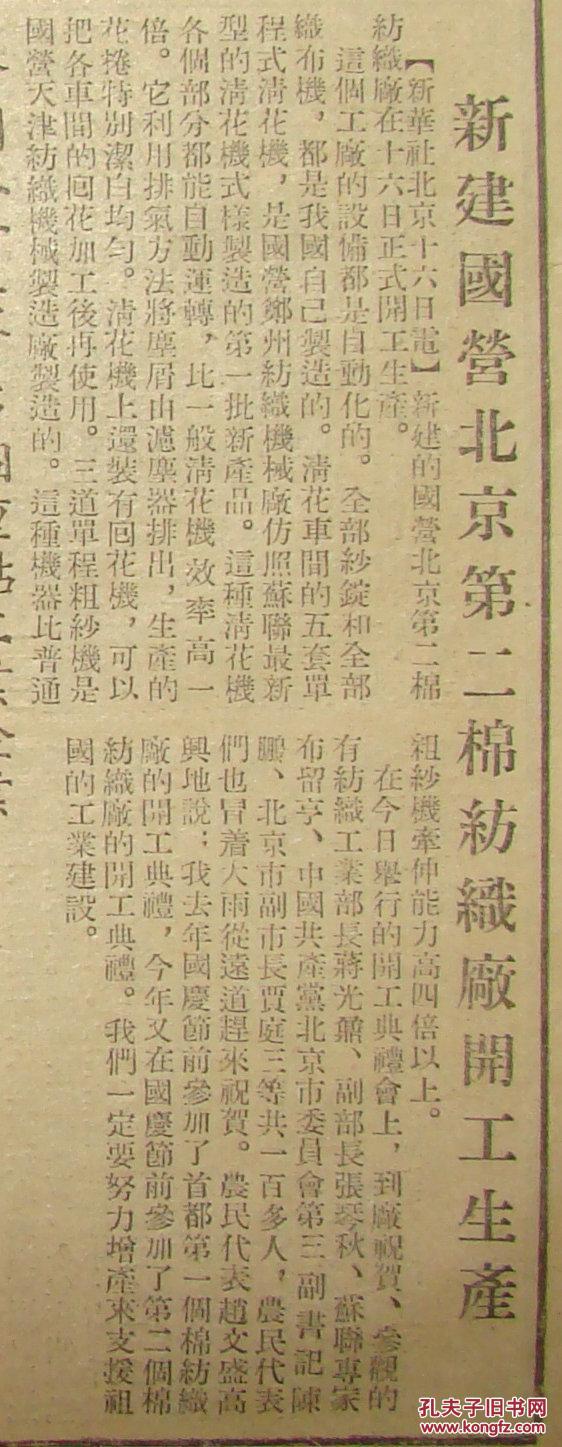 新建國營北京第二棉紡織廠開工生產
【新華社北京十六日電】新建的國營北京第二棉
紡織廠在十六日正式開工生產。
這個工廠的設備都是自動化的。全部紗錠和全部
織布機，都是我國自己製造的。清花車間的五套單
程式清花機，是國營鄭州紡織機械廠仿照蘇聯最新
型的清花機式樣製造的第一批新產品。這種清花機
各個部分都能自動運轉，比一般清花機效率高一
倍。它利用排氣方法將塵屑由濾塵器排出，生產的
花捲特別潔白均勻。清花機上還裝有回花機，可以
把各車間的回花加工後再使用。三道單程粗紗機是
國營天津紡織機械製造廠製造的。這種機器比普通
粗紗機牽伸能力高四倍以上。
在今日舉行的開工典禮會上，到廠祝賀、參觀的
有紡織工業部長蔣光鼐、副部長張琴秋、蘇聯專家
布留亨、中國共產黨北京市委員會第三副書記陳
鵬、北京市副市長賈庭三等共一百多人，農民代表
們也冒着大雨從遠道趕來祝賀。農民代表趙文盛高
興地說：我去年國慶節前參加了首都第一個棉紡織
廠的開工典禮，今年又在國慶節前參加了第二個棉
紡織廠的開工典禮。我們一定要努力增產來支援祖
國的工業建設。
孔夫子旧书网